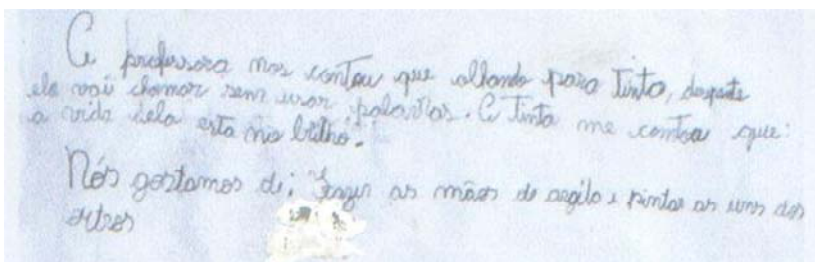 A professora nos contou que olhando para Tinta, desperte
ela vai chamar sem usar palavras. A Tinta me contou que:
a vida dela esta no brilho.
Nós gostamos de: Fazer as mãos de argila e pintar as uns dos
outros